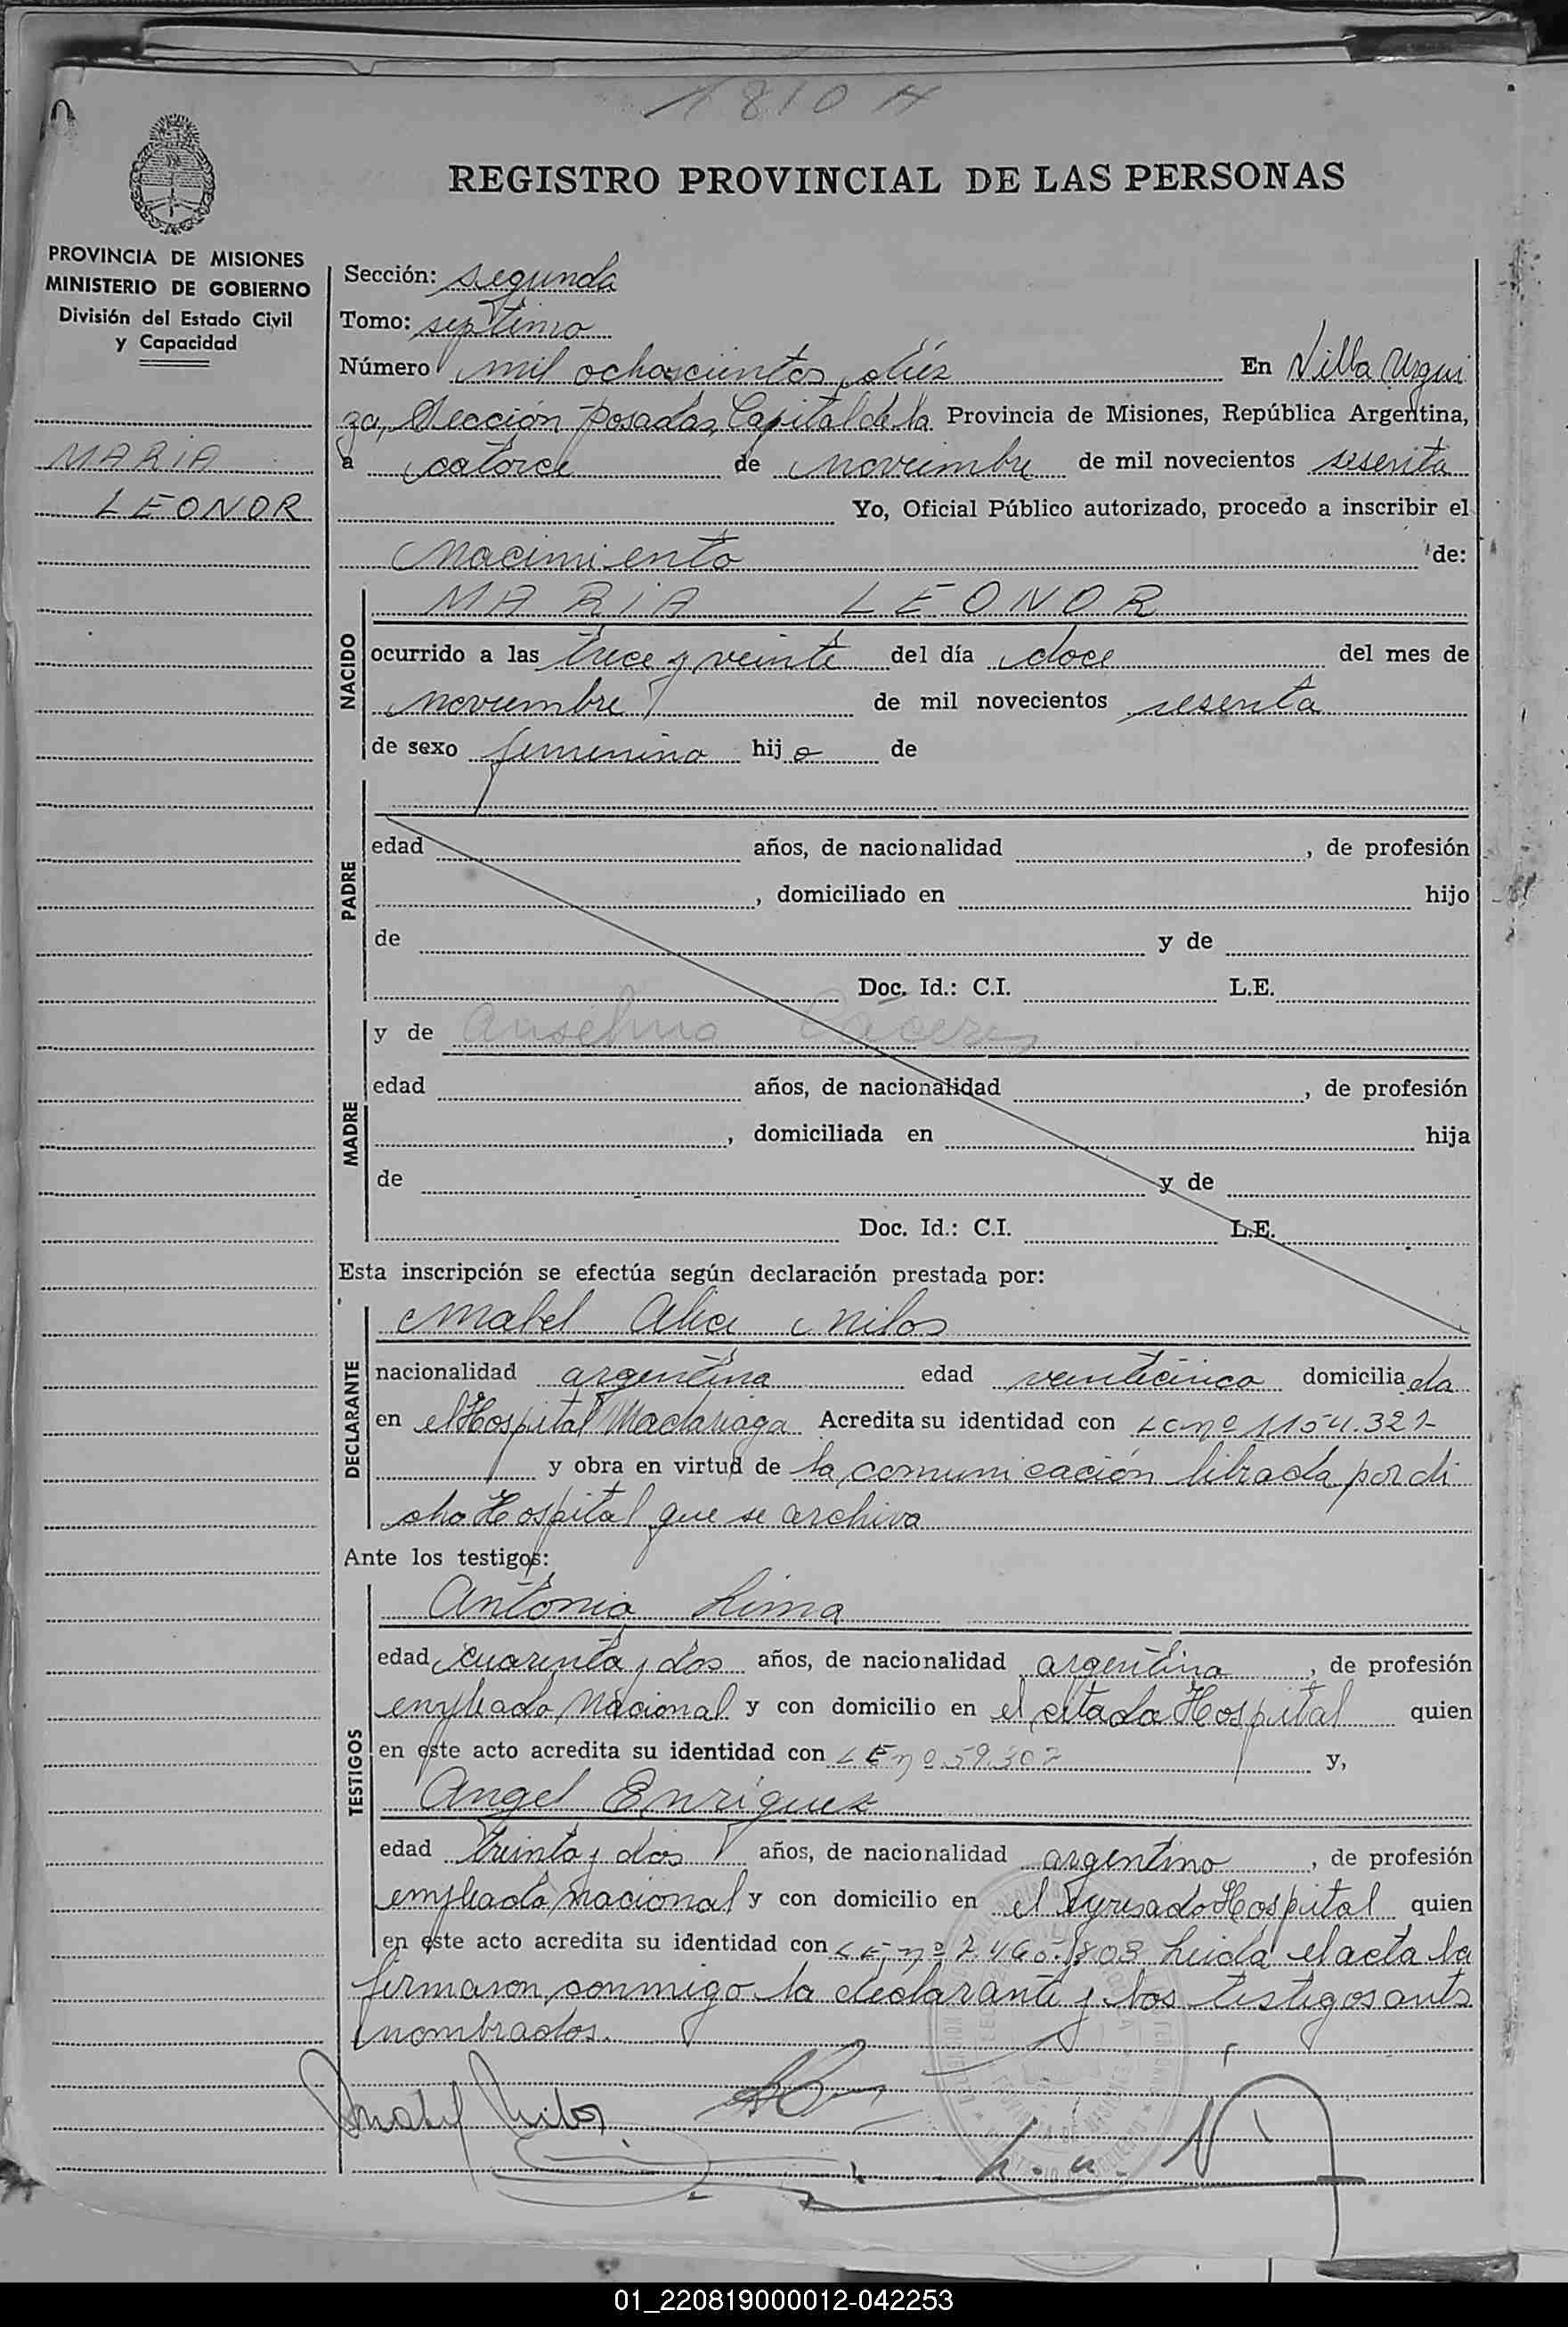 1810 H
REGISTRO PROVINCIAL DE LAS PERSONAS
PROVINCIA DE MISIONES
MINISTERIO DE GOBIERNO
División del Estado Civil
y Capacidad
MARIA
LEONOR
Sección: segunda
Tomo: septimo
Número mil ochoscientos diéz En Villa Urqui
za, Sección Posadas, Capital de la Provincia de Misiones, República Argentina,
a catorce de noviembre de mil novecientos sesenta
Yo, Oficial Público autorizado, procedo a inscribir el
Nacimiento de:
NACIDO
MARIA LEONOR
ocurrido a las trece y veinte del día doce del mes de
noviembre de mil novecientos sesenta
de sexo femenino hij a de
PADRE
edad años, de nacionalidad , de profesión
, domiciliado en hijo
de y de
Doc. Id.: C.I. L.E.
MADRE
y de Anselma Cáceres
edad años, de nacionalidad , de profesión
, domiciliada en hija
de y de
Doc. Id.: C.I. L.E.
Esta inscripción se efectúa según declaración prestada por:
DECLARANTE
Mabel Alice Milos
nacionalidad argentina edad veinticinco domiciliada
en el Hospital Madariaga Acredita su identidad con LC nº 1154.327
y obra en virtud de la comunicación librada por di
cho Hospital que se archiva
Ante los testigos:
TESTIGOS
Antonio Lima
edad cuarenta y dos años, de nacionalidad argentina, de profesión
empleado Nacional y con domicilio en el citado Hospital quien
en este acto acredita su identidad con LE nº 59.307 y,
Angel Enriquez
edad treinta y dos años, de nacionalidad argentino, de profesión
empleado nacional y con domicilio en el expresado Hospital quien
en este acto acredita su identidad con LE, nº 7.460.803 Leida el acta la
firmaron conmigo la declarante y los testigos ants
nombrados.
Mabel Milos
01_220819000012-042253